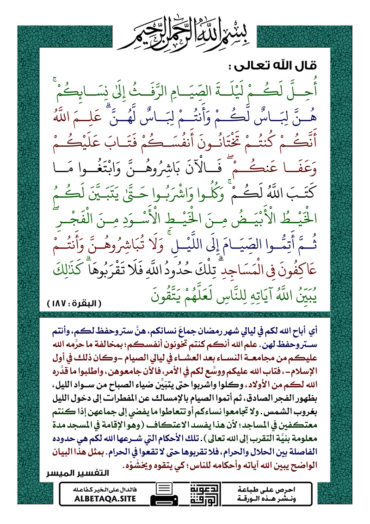 بسم الله الرحمن الرحيم
قال الله تعالى :
أُحِلَّ لَكُمْ لَيْلَةَ الصِّيَامِ الرَّفَثُ إِلَىٰ نِسَائِكُمْ ۚ
هُنَّ لِبَاسٌ لَّكُمْ وَأَنتُمْ لِبَاسٌ لَّهُنَّ ۗ عَلِمَ اللَّهُ
أَنَّكُمْ كُنتُمْ تَخْتَانُونَ أَنفُسَكُمْ فَتَابَ عَلَيْكُمْ
وَعَفَا عَنكُمْ ۖ فَالْآنَ بَاشِرُوهُنَّ وَابْتَغُوا مَا
كَتَبَ اللَّهُ لَكُمْ ۚ وَكُلُوا وَاشْرَبُوا حَتَّىٰ يَتَبَيَّنَ لَكُمُ
الْخَيْطُ الْأَبْيَضُ مِنَ الْخَيْطِ الْأَسْوَدِ مِنَ الْفَجْرِ ۖ
ثُمَّ أَتِمُّوا الصِّيَامَ إِلَى اللَّيْلِ ۚ وَلَا تُبَاشِرُوهُنَّ وَأَنتُمْ
عَاكِفُونَ فِي الْمَسَاجِدِ ۗ تِلْكَ حُدُودُ اللَّهِ فَلَا تَقْرَبُوهَا ۗ كَذَٰلِكَ
يُبَيِّنُ اللَّهُ آيَاتِهِ لِلنَّاسِ لَعَلَّهُمْ يَتَّقُونَ
( البقرة : ١٨٧ )
أي أباح الله لكم في ليالي شهر رمضان جماعَ نسائكم، هنَّ ستر وحفظ لكم، وأنتم
ستر وحفظ لهن. علم الله أنكم كنتم تخونون أنفسكم؛ بمخالفة ما حرَّمه الله
عليكم من مجامعة النساء بعد العشاء في ليالي الصيام -وكان ذلك في أول
الإسلام-، فتاب الله عليكم ووسَّع لكم في الأمر، فالآن جامعوهن، واطلبوا ما قدَّره
الله لكم من الأولاد، وكلوا واشربوا حتى يتبَيَّن ضياء الصباح من سواد الليل،
بظهور الفجر الصادق، ثم أتموا الصيام بالإمساك عن المفطرات إلى دخول الليل
بغروب الشمس. ولا تجامعوا نساءكم أو تتعاطوا ما يفضي إلى جماعهن إذا كنتم
معتكفين في المساجد؛ لأن هذا يفسد الاعتكاف (وهو الإقامة في المسجد مدة
معلومة بنيَّة التقرب إلى الله تعالى). تلك الأحكام التي شرعها الله لكم هي حدوده
الفاصلة بين الحلال والحرام، فلا تقربوها حتى لا تقعوا في الحرام. بمثل هذا البيان
الواضح يبين الله آياته وأحكامه للناس؛ كي يتقوه ويخشَوْه.
التفسير الميسر
احرص على طباعة
ونشر هذه الورقة
الدعوية
الورقة
فالدال على الخير كفاعله
ALBETAQA.SITE